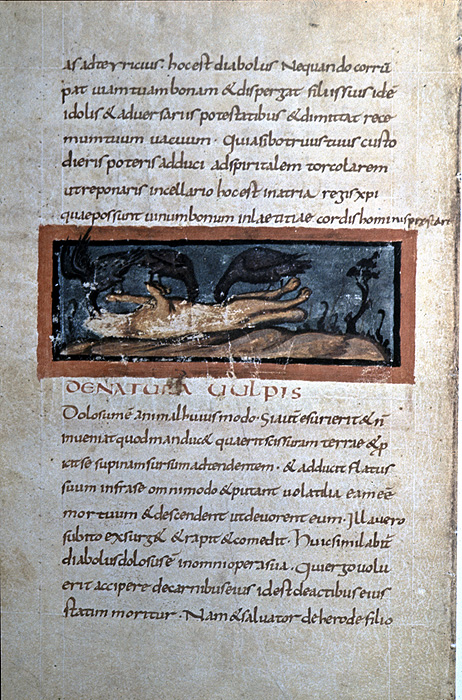 as adte yricius. hoc est diabolus Nequando corrū
pat uiam tuam bonam & disperg at filiis suis idē
idolis & aduersariis potestatibus & dimittat rece
mum tuum uacuum. Quia si botruis tuis custo
dieris poteris adduci ad spiritalem torcolarem
ut reponaris in cellario hoc est in atria regis xpi
quae possunt uinum bonum in laetitiae cordis hominis prestare
DE NATURA UULPIS
Dolosum ē animal huius modo. Si aut̄ esurierit & ñ
inueniat quod manduc& quaerit scissuram terrae & p
icit se supinam sursum adtendentem. & adducit flatus
suum infra se omni modo & putant uolatilia eam eē
mortuum & descendent ut deuorent eum. Illa uero
subito exsurg& & rapit & comedit. Huic similabit̄
diabolus dolosus ē in omni opera sua. Qui ergo uolu
erit accipere de carnibus eius id est de actibus eius
statim moritur. Nam & saluator de herode filio